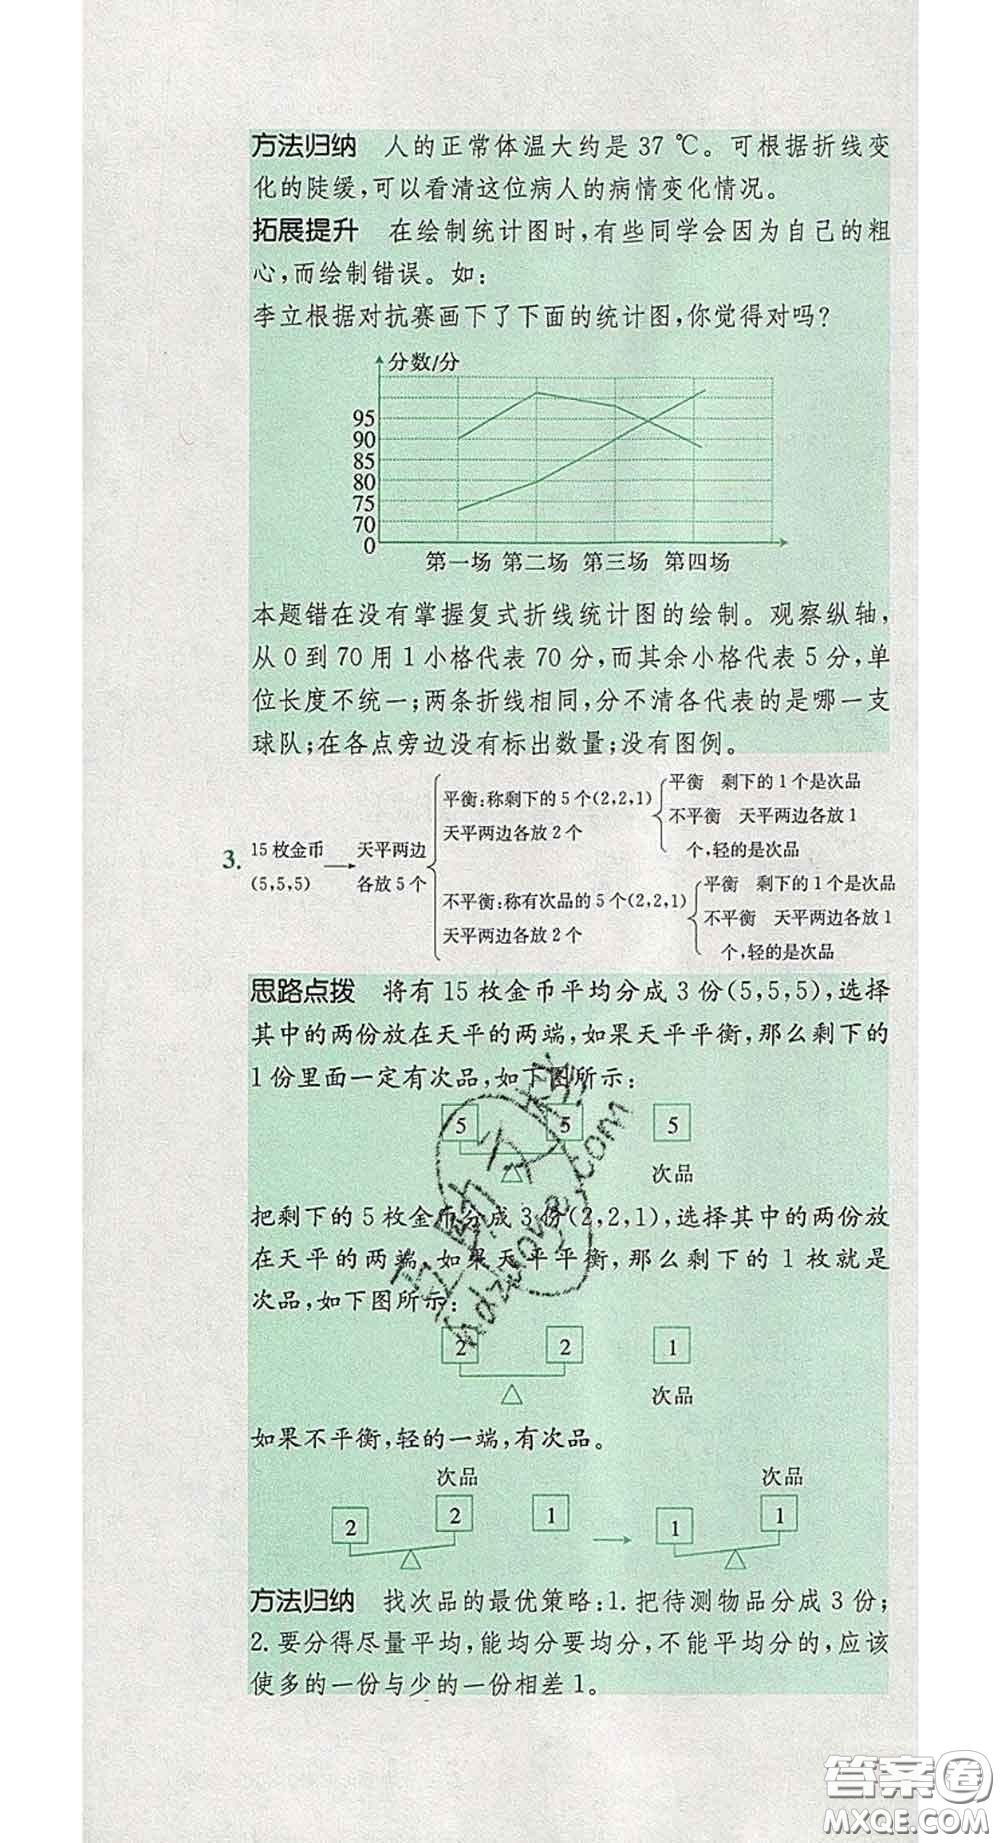 方法归纳 人的正常体温大约是37 ℃。可根据折线变
化的陡缓,可以看清这位病人的病情变化情况。
拓展提升 在绘制统计图时,有些同学会因为自己的粗
心,而绘制错误。如:
李立根据对抗赛画下了下面的统计图,你觉得对吗?
分数/分
95
90
85
80
75
70
0
第一场 第二场 第三场 第四场
本题错在没有掌握复式折线统计图的绘制。观察纵轴,
从0到70用1小格代表70分,而其余小格代表5分,单
位长度不统一;两条折线相同,分不清各代表的是哪一支
球队;在各点旁边没有标出数量;没有图例。
3.
15枚金币
(5,5,5)
天平两边
各放5个
平衡:称剩下的5个(2,2,1)
天平两边各放2个
平衡 剩下的1个是次品
不平衡 天平两边各放1
个,轻的是次品
不平衡:称有次品的5个(2,2,1)
天平两边各放2个
平衡 剩下的1个是次品
不平衡 天平两边各放1
个,轻的是次品
思路点拨 将有15枚金币平均分成3份(5,5,5),选择
其中的两份放在天平的两端,如果天平平衡,那么剩下的
1份里面一定有次品,如下图所示:
5 5 5
次品
把剩下的5枚金币分成3份(2,2,1),选择其中的两份放
在天平的两端,如果天平平衡,那么剩下的1枚就是
次品,如下图所示:
2 2 1
次品
如果不平衡,轻的一端,有次品。
次品 次品
2 2 1 1 1
方法归纳 找次品的最优策略:1.把待测物品分成3份;
2.要分得尽量平均,能均分要均分,不能平均分的,应该
使多的一份与少的一份相差1。
答案卷
MXQE.COM